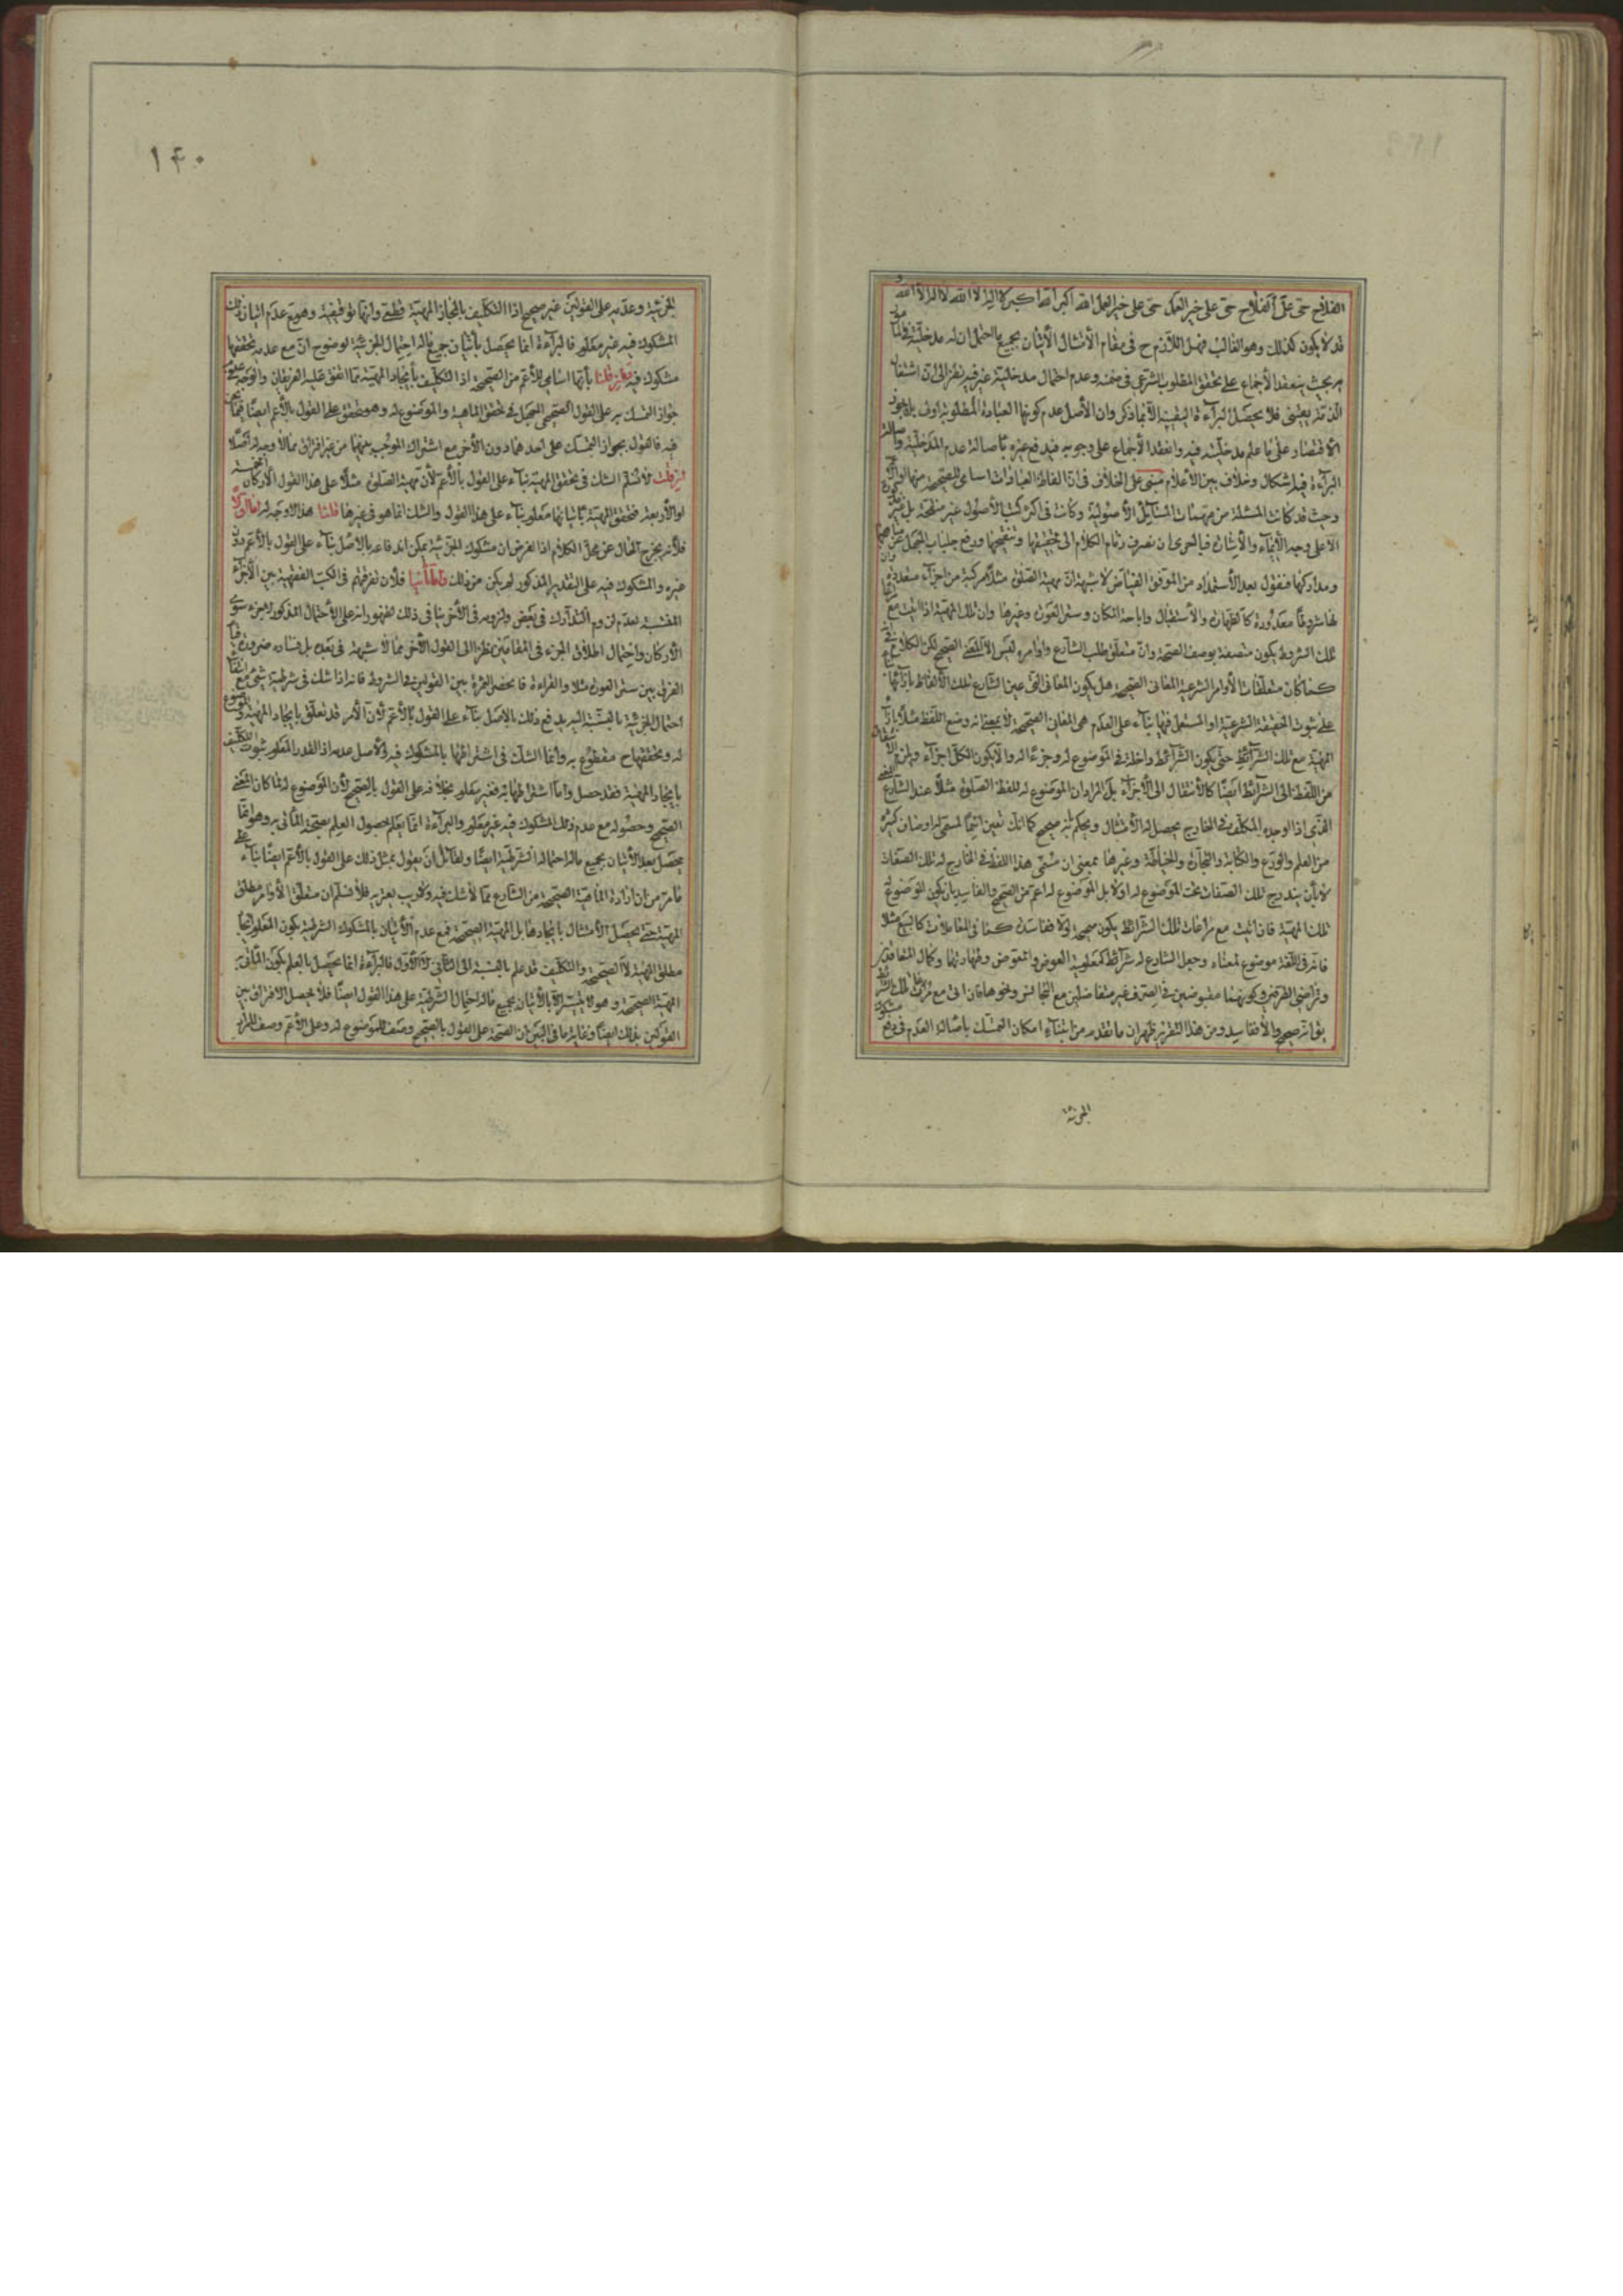 الفلاح حي على الفلاح حي على خير العمل حي على خير العمل الله اكبر الله اكبر لا اله الا الله لا اله الا الله و
قد لا يكون كذلك وهو الغالب فهل اللازم ح في مقام الأمتثال الأتيان بجميع ما احتمل ان له مدخلية في
به بحيث ينعقد الأجماع على تحقق المطلوب الشرعي في ضمنه وعدم احتمال مدخلية غيره فيه نظرا الى ان اشتغال
الذمة يقيني فلا يحصل البرآءة اليقينية الا بما ذكر وان الأصل عدم كونها العبادة المطلوبة او يجوز
الأقتصار على ما علم مدخليته فيه وانعقد الأجماع على وجوبه فيدفع غيره باصالة عدم المدخلية واصالة
البرآءة فيه اشكال وخلاف بين الأعلام مبني على الخلاف في ان الفاظ العبادات اسامي للصحيحة منها او الأعم
وحيث قد كانت المسئلة من مهمات المسائل الأصولية وكانت في اكثر كتب الأصول غير منقحة بل غير
الا على وجه الأيماء والأشارة فبالحري ان نصرف زمام الكلام الى تحقيقها وتنقيحها ورفع جلباب
ومداركها فنقول بعد الأستمداد من الموفق الفياض لا شبهة ان مهية الصلوة مثلا مركبة من اجزآء متعددة
لها شروطا معدودة كالطهارة والأستقبال واباحة المكان وستر العورة وغيرها وان تلك المهية اذا اتيت مع
تلك الشروط يكون متصفة بوصف الصحة وان متعلق طلب الشارع واوامره ليس الا الصحيح لكن الكلام في
كما كان متعلقات الأوامر الشرعية المعاني الصحيحة هل يكون المعاني التي عين الشارع تلك الألفاظ بازائها
على ثبوت الحقيقة الشرعية او المستعمل فيها بناء على العدم هي المعاني الصحيحة لا بمعنى انه وضع اللفظ مثلا بازاء
المهية مع تلك الشرائط حتى يكون الشرائط داخلة في الموضوع له وجزءا له والا يكون الكل اجزآء ولزم
من اللفظ الى الشرائط ايضا كالأنتقال الى الأجزاء بل المراد ان الموضوع له للفظ الصلوة مثلا عند الشارع
الذي اذا اوجده المكلف في الخارج يحصل له الأمتثال ويحكم بانه صحيح كما انك تعين اسما لمسمى له اوصاف كثيرة
من العلم والورع والكتابة والتجارة والخياطة وغيرها بمعنى ان مسمى هذا اللفظ في الخارج له تلك الصفات
لا بأن يندرج تلك الصفات تحت الموضوع له اولا بل الموضوع له اعم من الصحيح والفاسد بان يكون الموضوع له
تلك المهية فان اتيت مع مراعات تلك الشرائط يكون صحيحة والا ففاسدة كما في المعاملات كالبيع مثلا
فانه في اللغة موضوع لمعناه وجعل الشارع له شرائط كمعلومية العوض والمعوض وطهارتهما وكمال المتعاقدين
وتراضي الطرفين وكونهما مقبوضين في الصرف غير متفاضلين مع التجانس ونحوها فان اتى مع مراعاة تلك الشرائط
يق انه صحيح والا ففاسد ومن هذا التقرير ظهر ان ما تقدم من ابتناء امكان التمسك باصالة العدم في رفع مشكوك
الجزئية
١٤٠
الجزئية وعدمه على القولين غير صحيح اذا التكليف بايجاد المهية قطعي وانها توقيفية وهو مع عدم اتيان ذلك
المشكوك فيه غير معلوم فالبرآءة انما يحصل باتيان جميع ما له احتمال الجزئية لوضوح ان مع عدمه تحققها
مشكوك فيه قلنا بأنها اسامي للأعم من الصحيحة اذ التكليف بأيجاد المهية مما اتفق عليه الفريقان
جواز التمسك به على القول الصحيحي في تحقق الماهية والموضوع له وهو متحقق على القول بالأعم ايضا
فيه فالقول بجواز التمسك على احدهما دون الأخر مع اشتراك الموجب بينهما من غير فرق مما لا وجه له اصلا
فان قلت لا نسلم الشك في تحقق المهية بناء على القول بالأعم لأن مهية الصلوة مثلا على هذا القول الأركان الخمسة
او الأربعة فتحقق المهية باتيانها معلوم بناء على هذا القول والشك انما هو في غيرها قلنا هذا لا وجه له اما اولا
فلأنه يخرج المقال عن محل الكلام اذ الغرض ان مشكوك الجزئية يمكن اندفاعه بالأصل بناء على القول بالأعم دون
غيره والمشكوك فيه على التقدير المذكور لم يكن من ذلك واما ثانيا فلأن تفرقتهم في الكتب الفقهية بين الأجزاء
المنسية بعدم لزوم التدارك في بعض ولزومه في الأخر ينافي ذلك لظهور انه على الأحتمال المذكور لا جزء سوى
الأركان واحتمال اطلاق الجزء في المقامين نظرا الى القول الأخر مما لا شبهة في بعده بل فساده ضرورة
الفرق بين ستر العورة مثلا والقراءة فانحصر الثمرة بين القولين في الشروط فانه اذا شك في شرطية شيء مع انتفاء
احتمال الجزئية بالنسبة اليه يدفع ذلك بالاصل بناء على القول بالأعم لأن الأمر قد تعلق بايجاد المهية والموضوع
له وتحققها ح مقطوع به وانما الشك في اشتراطها بالمشكوك فيه والأصل عدمه اذ القدر المعلوم ثبوت التكليف
بايجاد المهية فقد حصل واما اشتراطها به فغير معلوم بخلافه على القول بالصحيح لأن الموضوع له لما كان المعنى
الصحيح وحصوله مع عدم ذلك المشكوك فيه غير معلوم والبرآءة انما يعلم بحصول العلم بصحة المأتي به وهو انما
يحصل بعد الأتيان بجميع ما له احتمال الشرطية ايضا ولقائل ان يقول بمثل ذلك على القول بالأعم ايضا بناء على
ما مر من ان ارادة الماهية الصحيحة من الشارع مما لا شك فيه ولا ريب يعتريه فلا نسلم ان متعلق الأوامر مطلق
المهية حتى يحصل الأمتثال بايجادها بل المهية الصحيحة فمع عدم الأتيان بالمشكوك الشرطية يكون المعلوم ايجاد
مطلق المهية لا الصحيحة والتكليف قد علم بالنسبة الى الثاني لا الأول فالبرآءة انما يحصل بالعلم بكون المأتي به
المهية الصحيحة وهو لا يتيسر الا بالأتيان بجميع ما له احتمال الشرطية على هذا القول ايضا فلا يحصل الافتراق بين
القولين بذلك ايضا وغاية ما في البين ان الصحة على القول بالصحيح وصف للموضوع له وعلى الأعم وصف للمراد